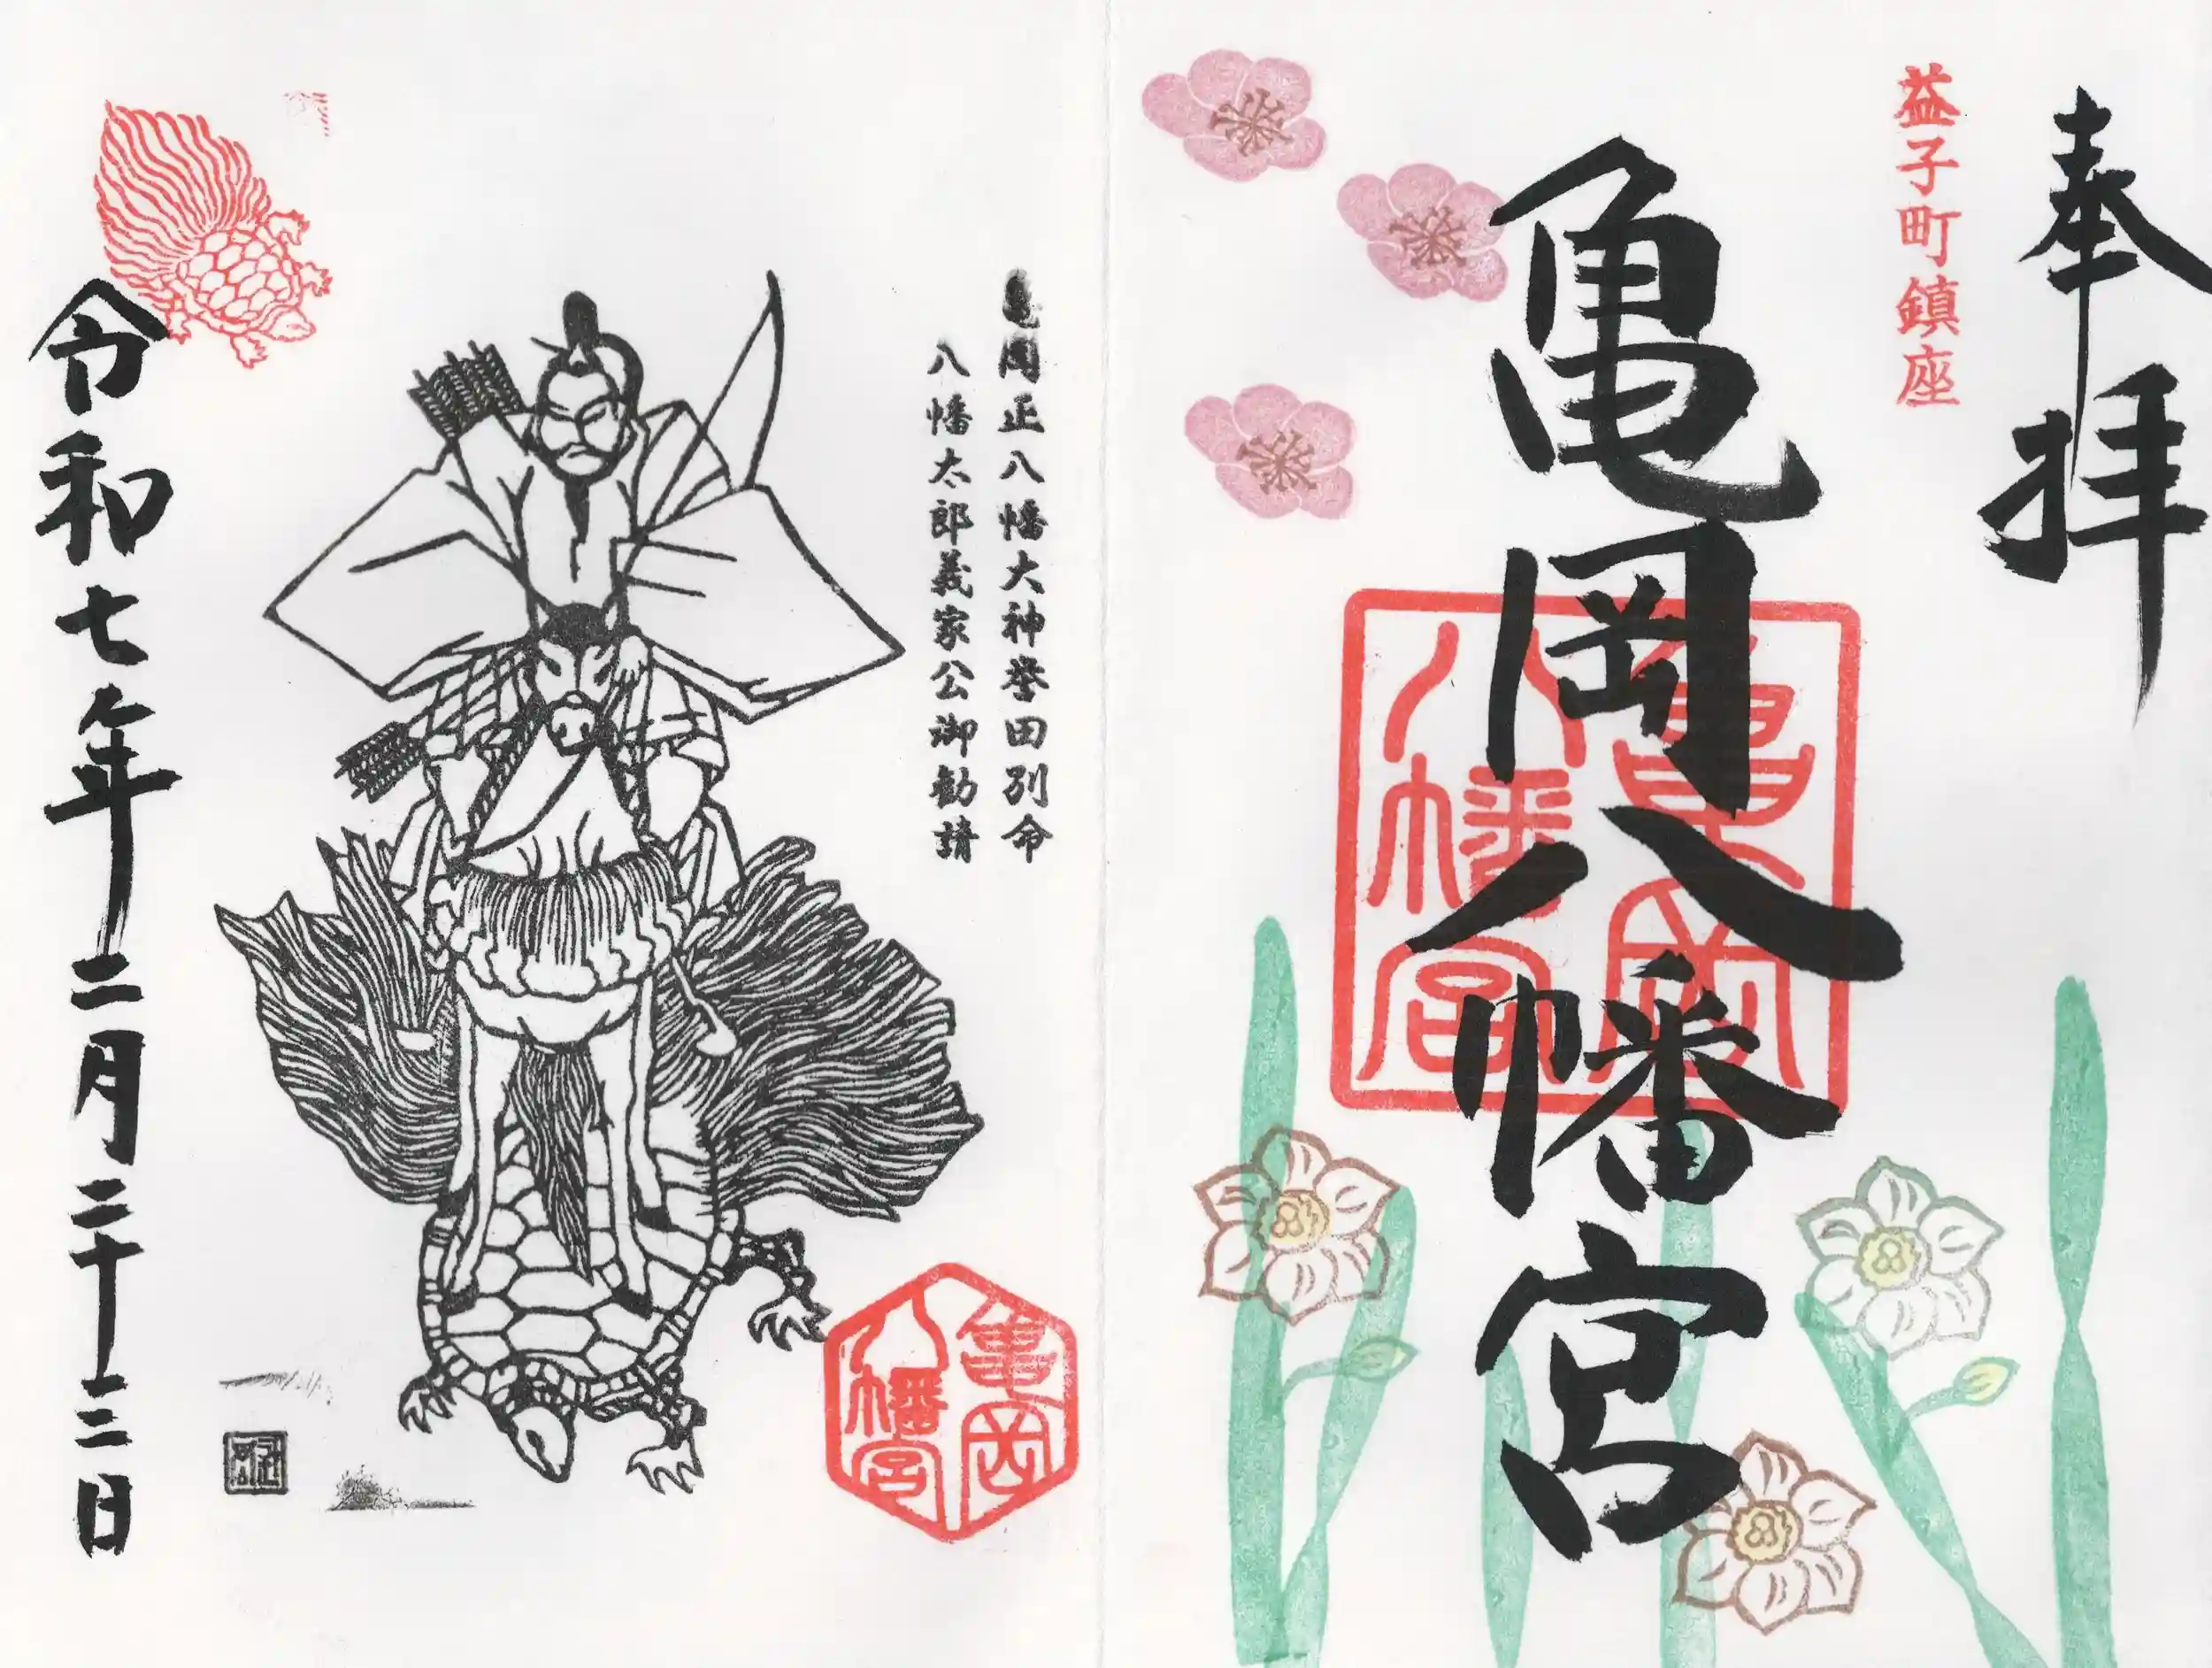 奉拝
益子町鎮座
亀岡八幡宮
亀岡
八幡宮
亀岡正八幡大神誉田別命
八幡太郎義家公御勧請
亀岡
八幡宮
令和七年二月二十三日